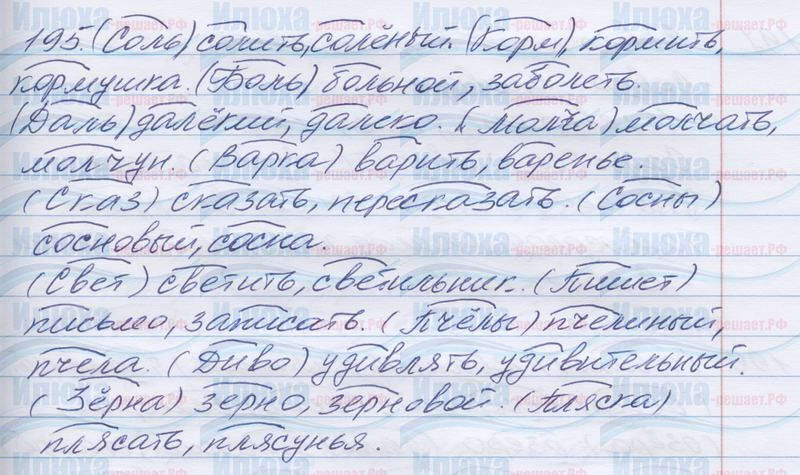 195. (Соль) солить, солёный. (Корм) кормить,
кормушка. (Боль) больной, заболеть.
(Даль) далёкий, далеко. (молча) молчать,
молчун. (Варка) варить, варенье.
(Сказ) сказать, пересказать. (Сосны)
сосновый, сосна.
(Свет) светить, светильник. (Пишет)
письмо, записать. (Пчёлы) пчелиный,
пчела. (Диво) удивлять, удивительный.
(Зёрна) зерно, зерновой. (Пляска)
плясать, плясунья.